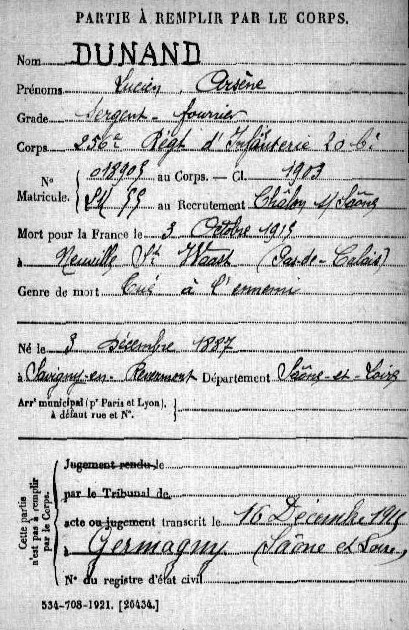 PARTIE À REMPLIR PAR LE CORPS.
Nom DUNAND
Prénoms Lucien, Arsène
Grade Sergent-fourrier
Corps 256e Régt d'Infanterie 20 Cie
N° Matricule. 018905 au Corps. — Cl. 1903
au Recrutement Châlon s/ Saône
Mort pour la France le 3 Octobre 1915
à Neuville St Waast (Pas-de-Calais)
Genre de mort Tué à l'ennemi
Né le 3 Décembre 1887
à Savigny-en-Revermont Département Saône-et-Loire
Arrt municipal (pr Paris et Lyon),
à défaut rue et N°.
Cette partie n'est pas à remplir par le Corps.
Jugement rendu le
par le Tribunal de
acte ou jugement transcrit le 16 Décembre 1915
à Germagny (Saône et Loire)
N° du registre d'état civil
534-708-1921. [26434.]